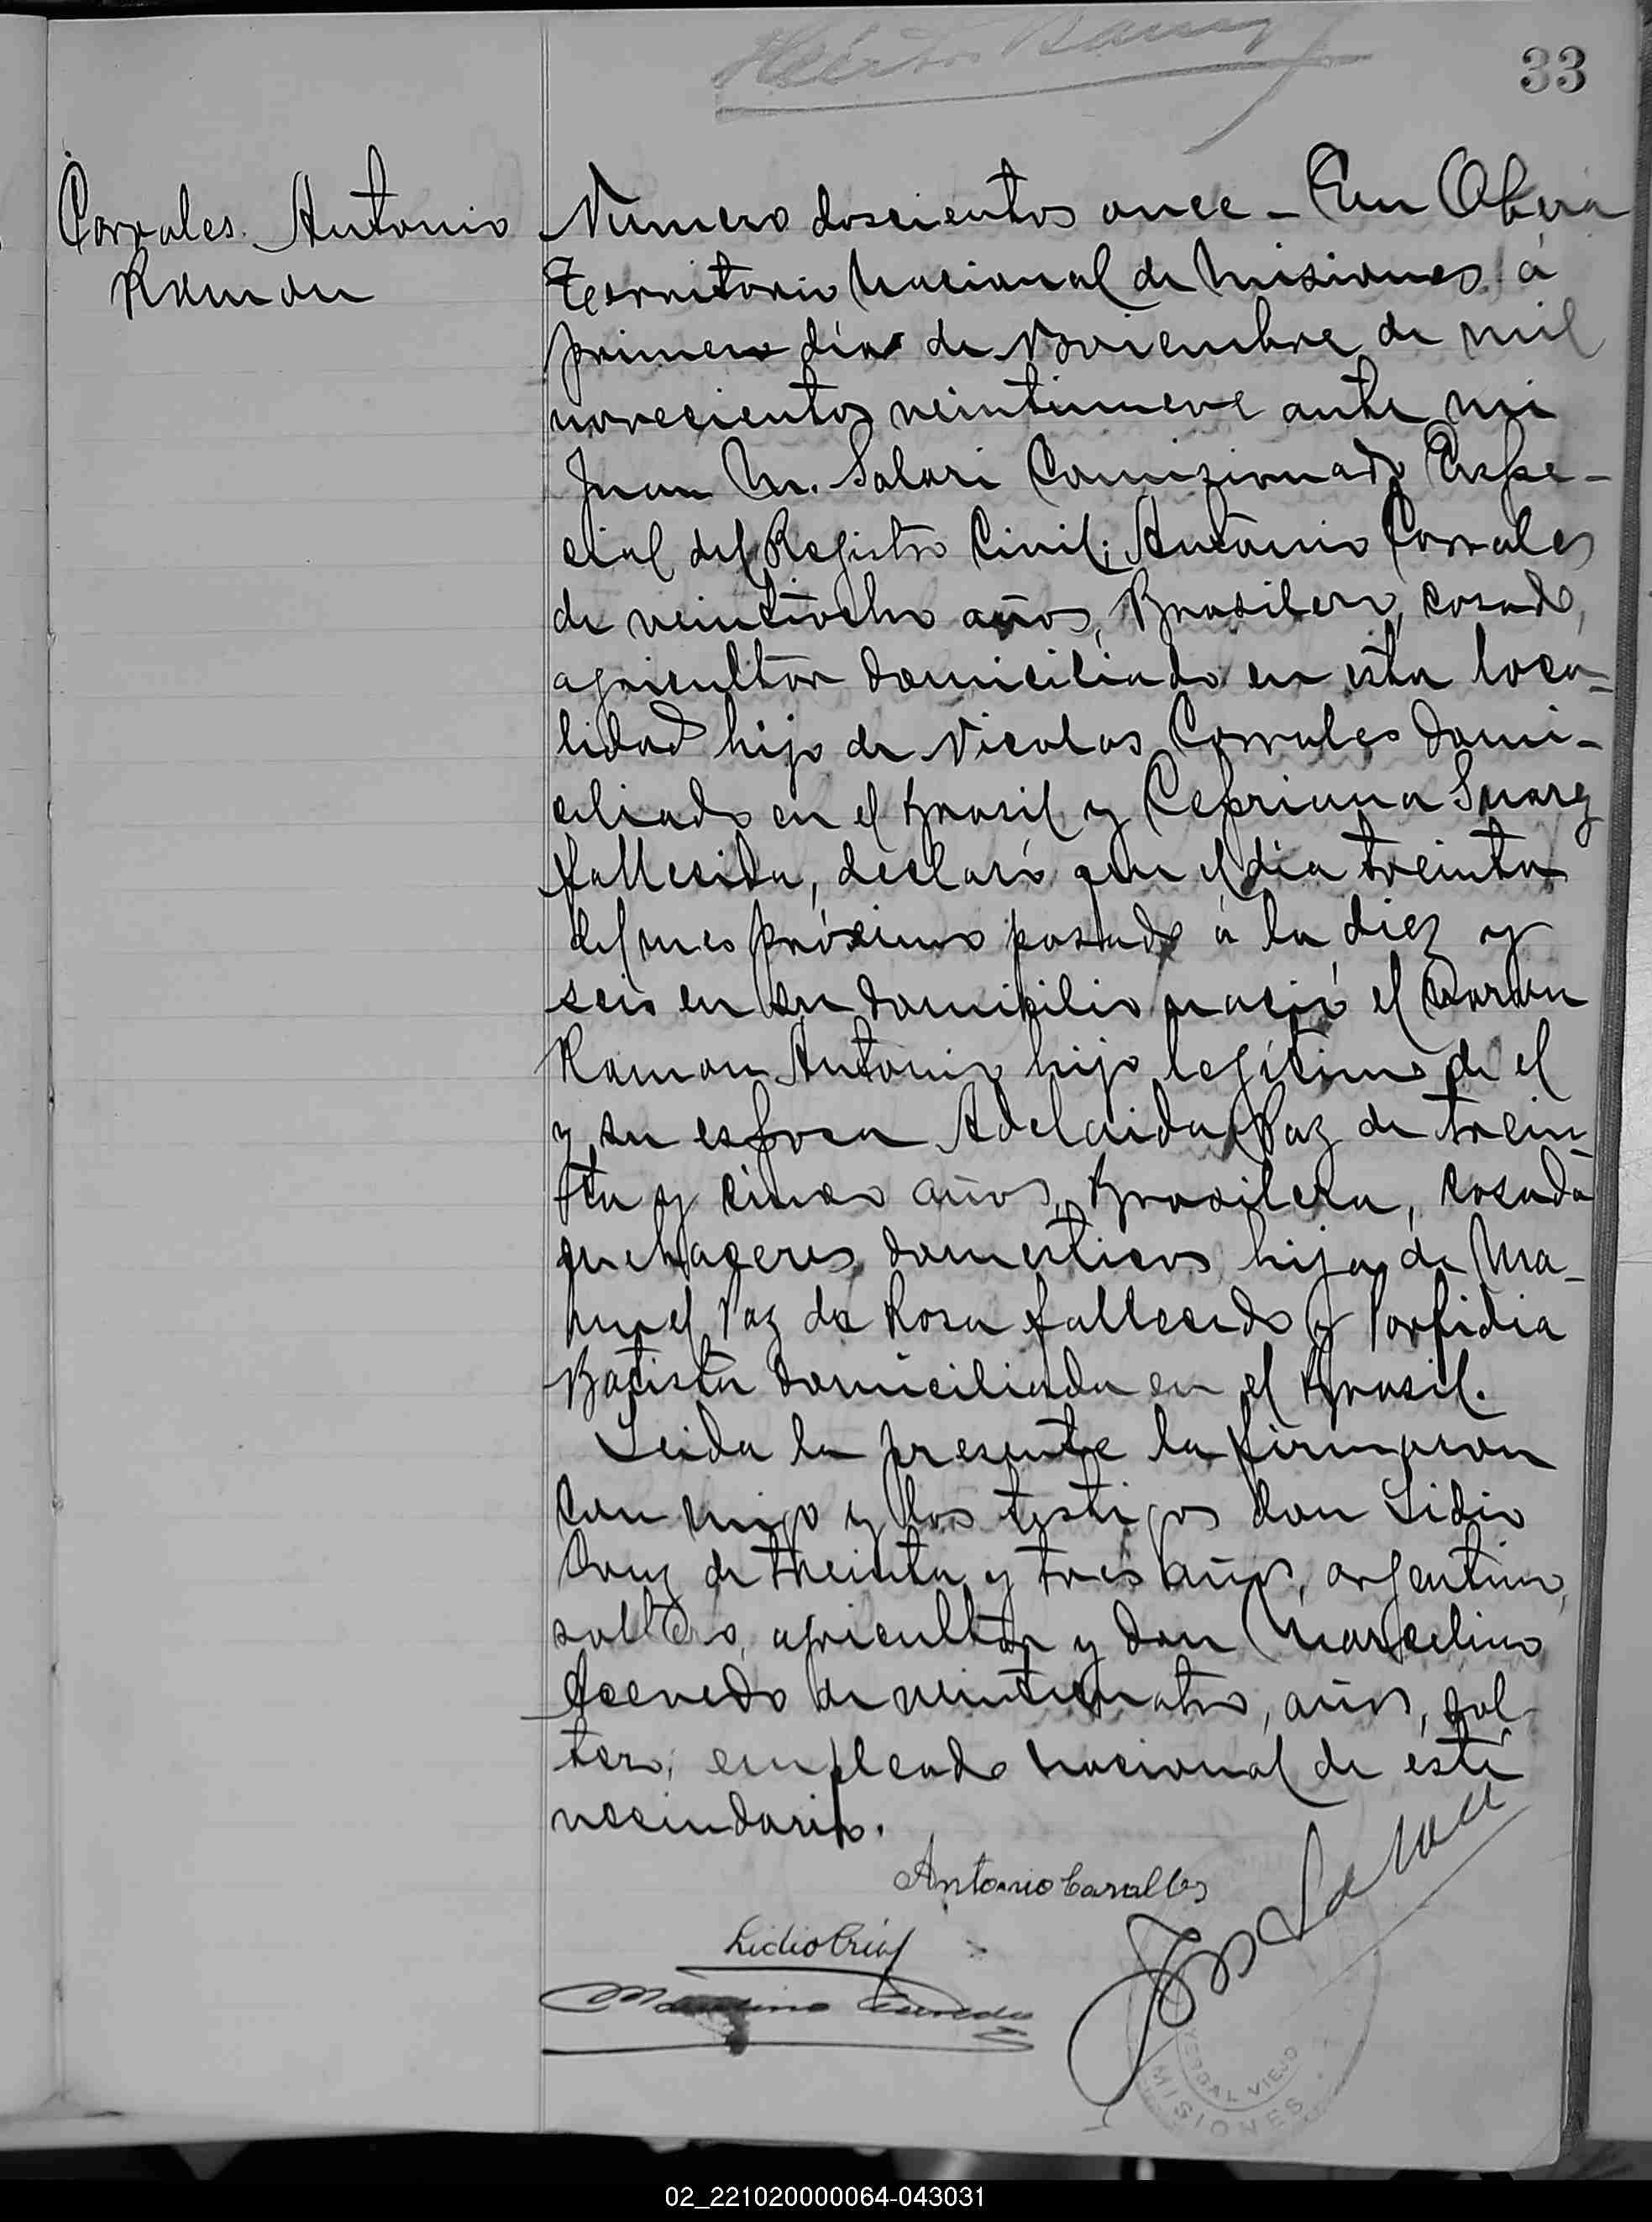 33
Corrales Antonio
Ramon
Numero doscientos once – En Oberá
Territorio Nacional de Misiones, á
primero día de Noviembre de mil
novecientos veintinueve ante mi
Juan M. Solari Comisionado Espe-
cial del Registro Civil; Antonio Corrales
de veintiocho años, Brasilero, casado,
agricultor domiciliado en esta loca=
lidad hijo de Nicolas Corrales domi-
ciliado en el Brasil y Cepriana Suarez
fallecida, declaró que el día treinta
del mes próximo pasado á la diez y
seis en su domicilio nació el varon
Ramon Antonio hijo legítimo de el
y su esposa Adelaida Paz de trein
ta y cinco años, Brasilera, casada
quehaceres domesticos hija de Ma-
nuel Paz da Rosa fallecido y Porfidia
Batista domiciliada en el Brasil.
Leida la presente la firmaron
con migo y los testigos don Lidio
de treinta y tres años, argentino,
soltero, agricultor y don Marcelino
Acevedo de veinticuatro, años, sol
tero, empleado nacional de este
vecindario.
Antonio Caralles
Lidio
YERBAL VIEJO
MISIONES
02_221020000064-043031